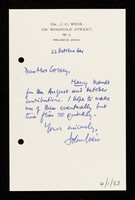 Dr. J. C. WEIR.
56 WIMPOLE STREET,
W.1.
22 October
Dear Mrs Lossey,
Many thanks
for the August and October
contributions. I hope to make
use of them eventually but
time flies so quickly.
Yours sincerely,
John Weir
6/1/63